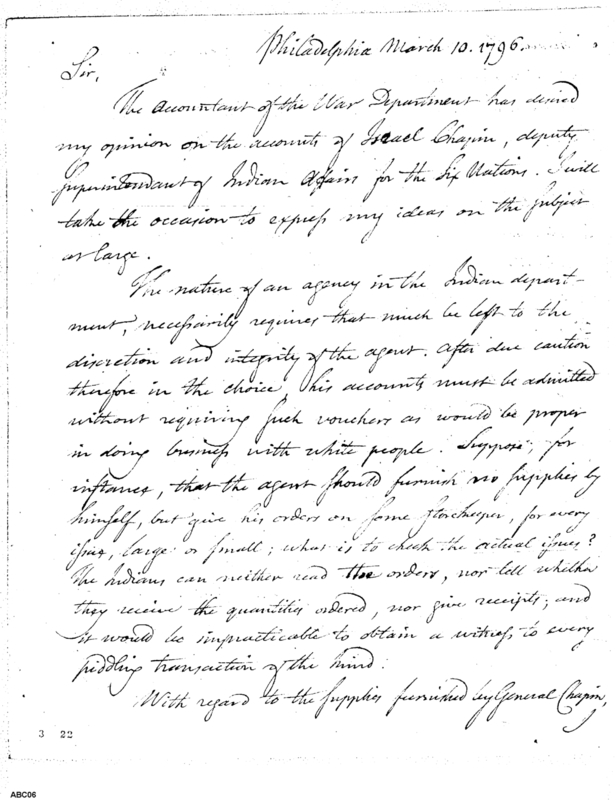 Philadelphia March 10. 1796.
Sir,
The accountant of the War Department has desired
my opinion on the accounts of Israel Chapin, deputy
Superintendant of Indian Affairs for the Six Nations. I will
take the occasion to express my ideas on the subject
at large.
The nature of an agency in the Indian depart-
ment, necessarily requires that much be left to the
discretion and integrity of the agent. After due caution
therefore in the choice, his accounts must be admitted
without requiring such vouchers as would be proper
in doing business with white people. Suppose, for
instance, that the agent should furnish no supplies by
himself, but give his orders on some storekeeper, for every
issue, large or small; what is to check the actual issues?
The Indians can neither read the orders, nor tell whether
they receive the quantities ordered, nor give receipts; and
it would be impracticable to obtain a witness to every
piddling transaction of the kind.
With regard to the supplies furnished by General Chapin,
3 22
ABC06